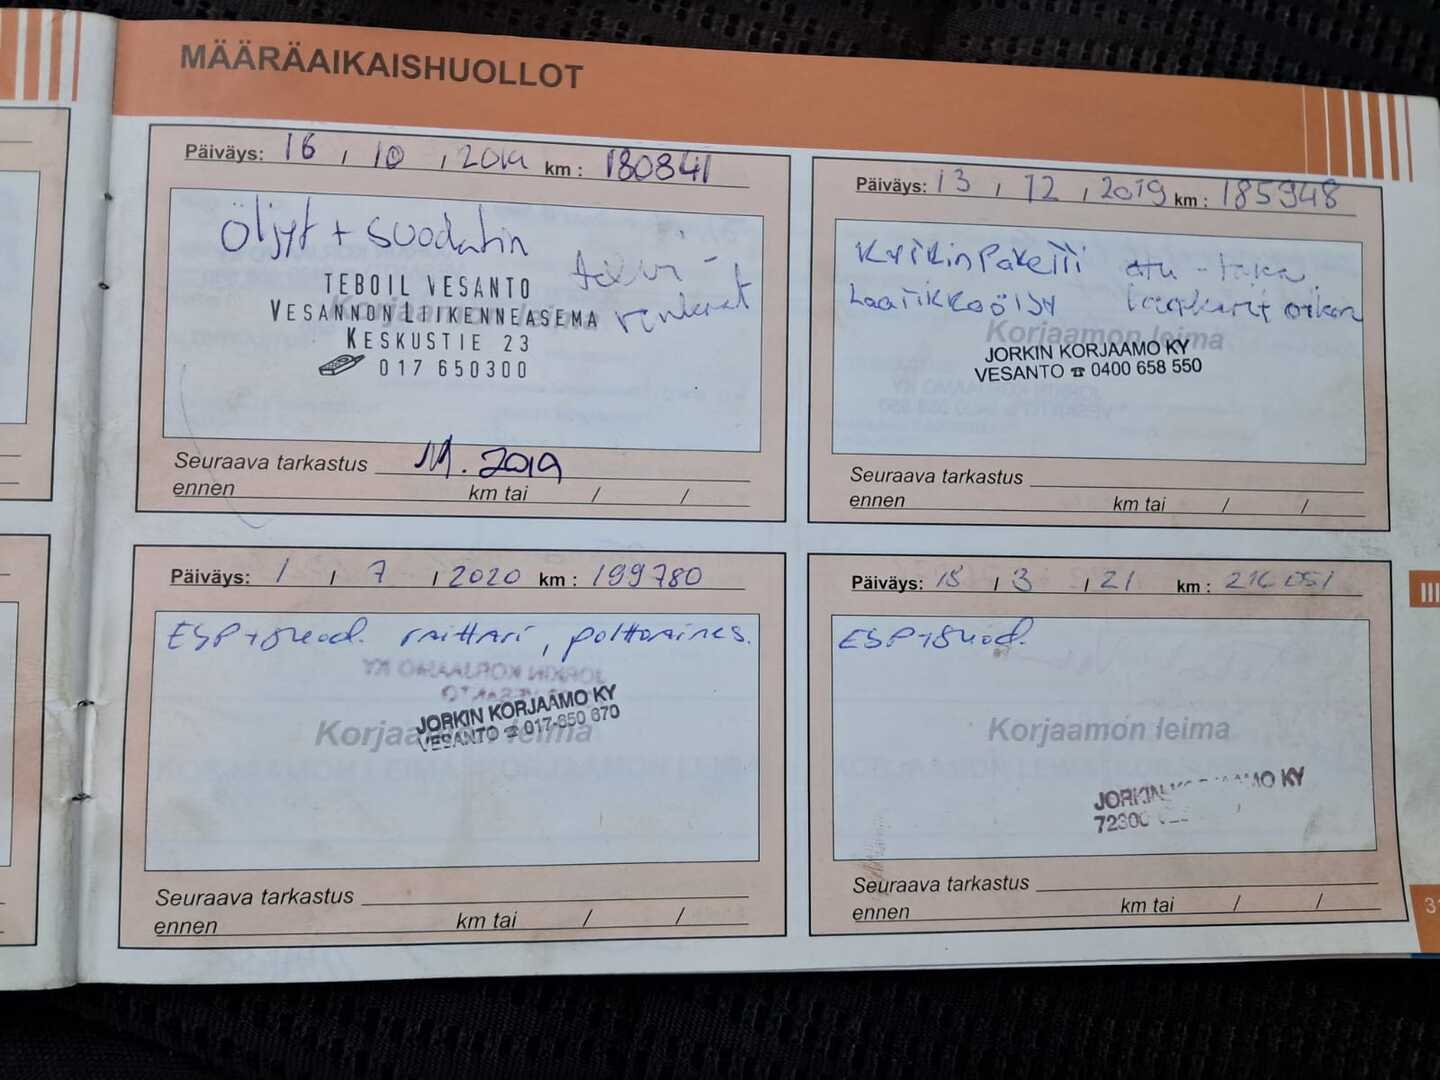 MÄÄRÄAIKAISHUOLLOT
Päiväys: 16 , 10 , 2019 km : 180841
Öljyt + suodatin
talvi-
renkaat
TEBOIL VESANTO
VESANNON LIIKENNEASEMA
KESKUSTIE 23
017 650300
Korjaamon leima
Seuraava tarkastus 11. 2019
ennen km tai / /
Päiväys: 13 , 12 , 2019 km : 185948
etu - taka
Laatikkoöljy
Korjaamon leima
JORKIN KORJAAMO KY
VESANTO ☎ 0400 658 550
Seuraava tarkastus
ennen km tai / /
Päiväys: 1 , 7 , 2020 km : 199780
ESP+suod. raittari, polttoaines.
JORKIN KORJAAMO KY
VESANTO ☎ 017-650 670
Korjaamon leima
Seuraava tarkastus
ennen km tai / /
Päiväys: 15 , 3 , 21 km : 216051
ESP+suod.
Korjaamon leima
JORKIN KORJAAMO KY
72300
Seuraava tarkastus
ennen km tai / /
III